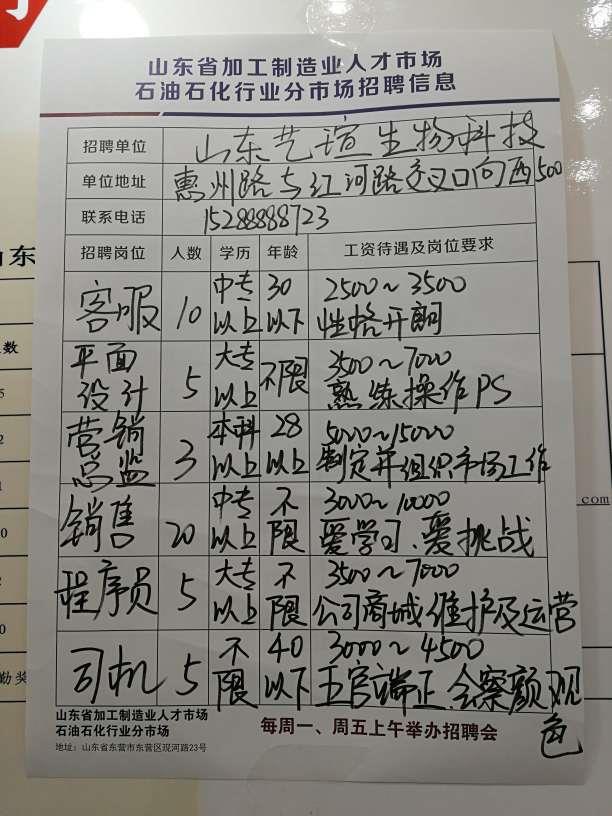 山东省加工制造业人才市场
石油石化行业分市场招聘信息
招聘单位 山东艺瑄生物科技
单位地址 惠州路与红河路交叉口向西500
联系电话 15288888723
招聘岗位 人数 学历 年龄 工资待遇及岗位要求
客服 10 中专以上 30以下 2500~3500 性格开朗
平面设计 5 大专以上 不限 3500~7000 熟练操作PS
营销总监 3 本科以上 28以上 5000~15000 制定并组织市场工作
销售 20 中专以上 不限 3000~10000 爱学习、爱挑战
程序员 5 大专以上 不限 3500~7000 公司商城维护及运营
司机 5 不限 40以下 3000~4500 五官端正、会察颜观色
山东省加工制造业人才市场
石油石化行业分市场
每周一、周五上午举办招聘会
地址：山东省东营市东营区现河路23号
com